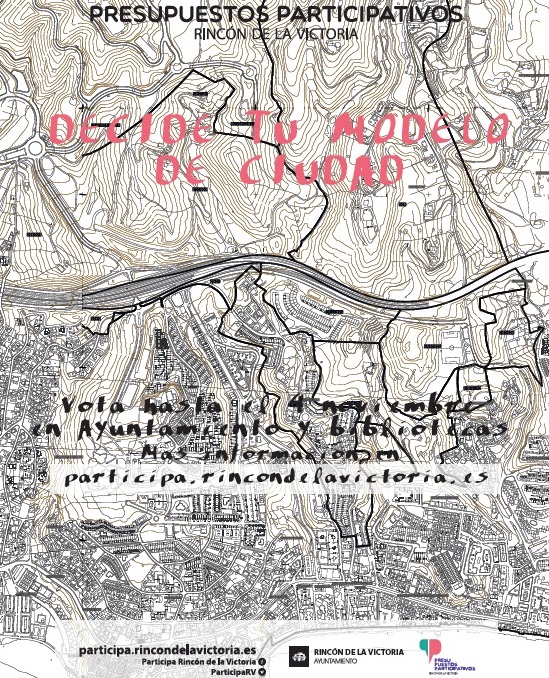 PRESUPUESTOS PARTICIPATIVOS
RINCÓN DE LA VICTORIA
DECIDE TU MODELO
DE CIUDAD
Vota hasta el 4 noviembre
en Ayuntamiento y bibliotecas
Mas informacion en
participa.rincondelavictoria.es
participa.rincondelavictoria.es
Participa Rincón de la Victoria
ParticipaRV
RINCÓN DE LA VICTORIA
AYUNTAMIENTO
PRESU
PUESTOS
PARTICIPATIVOS
RINCÓN DE LA VICTORIA